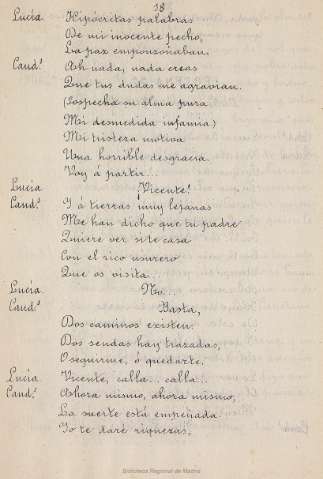 18
Lucía. Hipócritas palabras
De mi inocente pecho,
La paz emponzoñaban.
Cand.º Ah nada, nada creas
Que tus dudas me agravian.
(Sospecha su alma pura
Mi desmedida infamia)
Mi tristeza motiva
Una horrible desgracia
Voy á partir...
Lucía ¡Vicente!
Cand.º Y á tierras muy lejanas
Me han dicho que tu padre
Quiere ver si te casa
Con el rico usurero
Que os visita...
Lucía No...
Cand.º Basta,
Dos caminos existen:
Dos sendas hay trazadas,
O seguirme, ó quedarte,
Lucía Vicente, calla... calla...
Cand.º Ahora mismo, ahora mismo,
La suerte está empeñada
Yo te daré riquezas,
Biblioteca Regional de Madrid